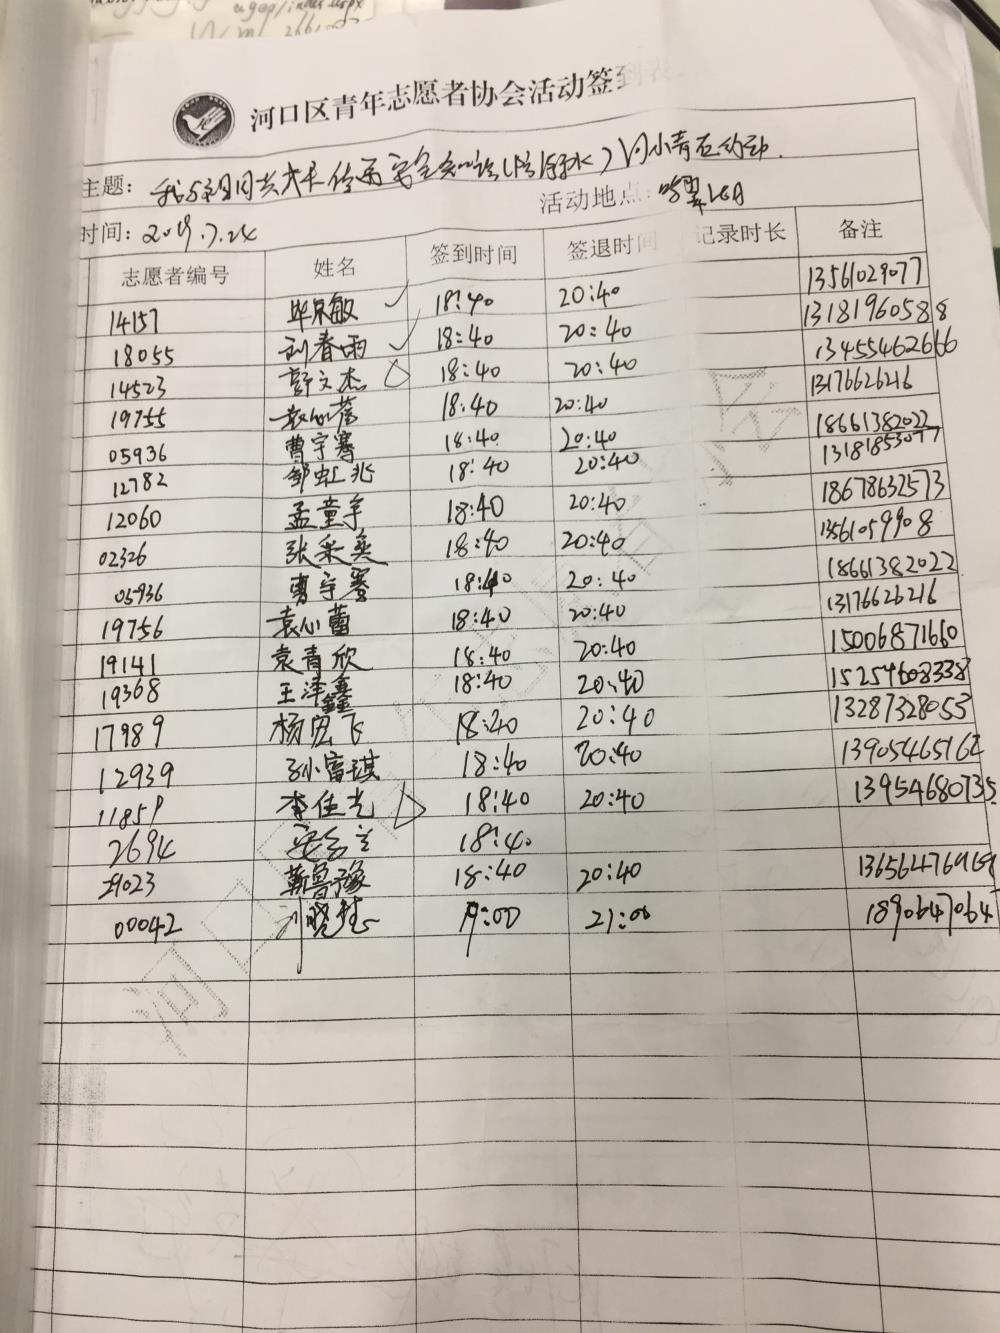 河口区青年志愿者协会活动签到表
主题：我与祖国共成长 传安全知识(防溺水)小青在行动.
时间：2019.7.24 活动地点：
志愿者编号 姓名 签到时间 签退时间 记录时长 备注
14157 毕京敏 18:40 20:40 13561029077
18055 刘春雨 18:40 20:40 13181960588
14523 彭文杰 18:40 20:40 13455462666
19755 袁小蕾 18:40 20:40 13176626216
05936 曹宇骞 18:40 20:40 18661382022
12782 邹虹兆 18:40 20:40 13181853077
12060 孟童宇 18:40 20:40 18678632573
02326 张采奕 18:40 20:40 13561059908
05936 曹宇骞 18:40 20:40 18661382022
19756 袁心蕾 18:40 20:40 13176626216
19141 袁青欣 18:40 20:40 15006871660
19368 王泽鑫 18:40 20:40 15254608338
17989 杨宏飞 18:20 20:40 13287328053
12939 孙富琪 18:40 20:40 13905465162
11859 李佳光 18:40 20:40 13954680735
2694 18:40
29023 靳鲁豫 18:40 20:40
00042 刘晓慧 19:00 21:00 1890647064